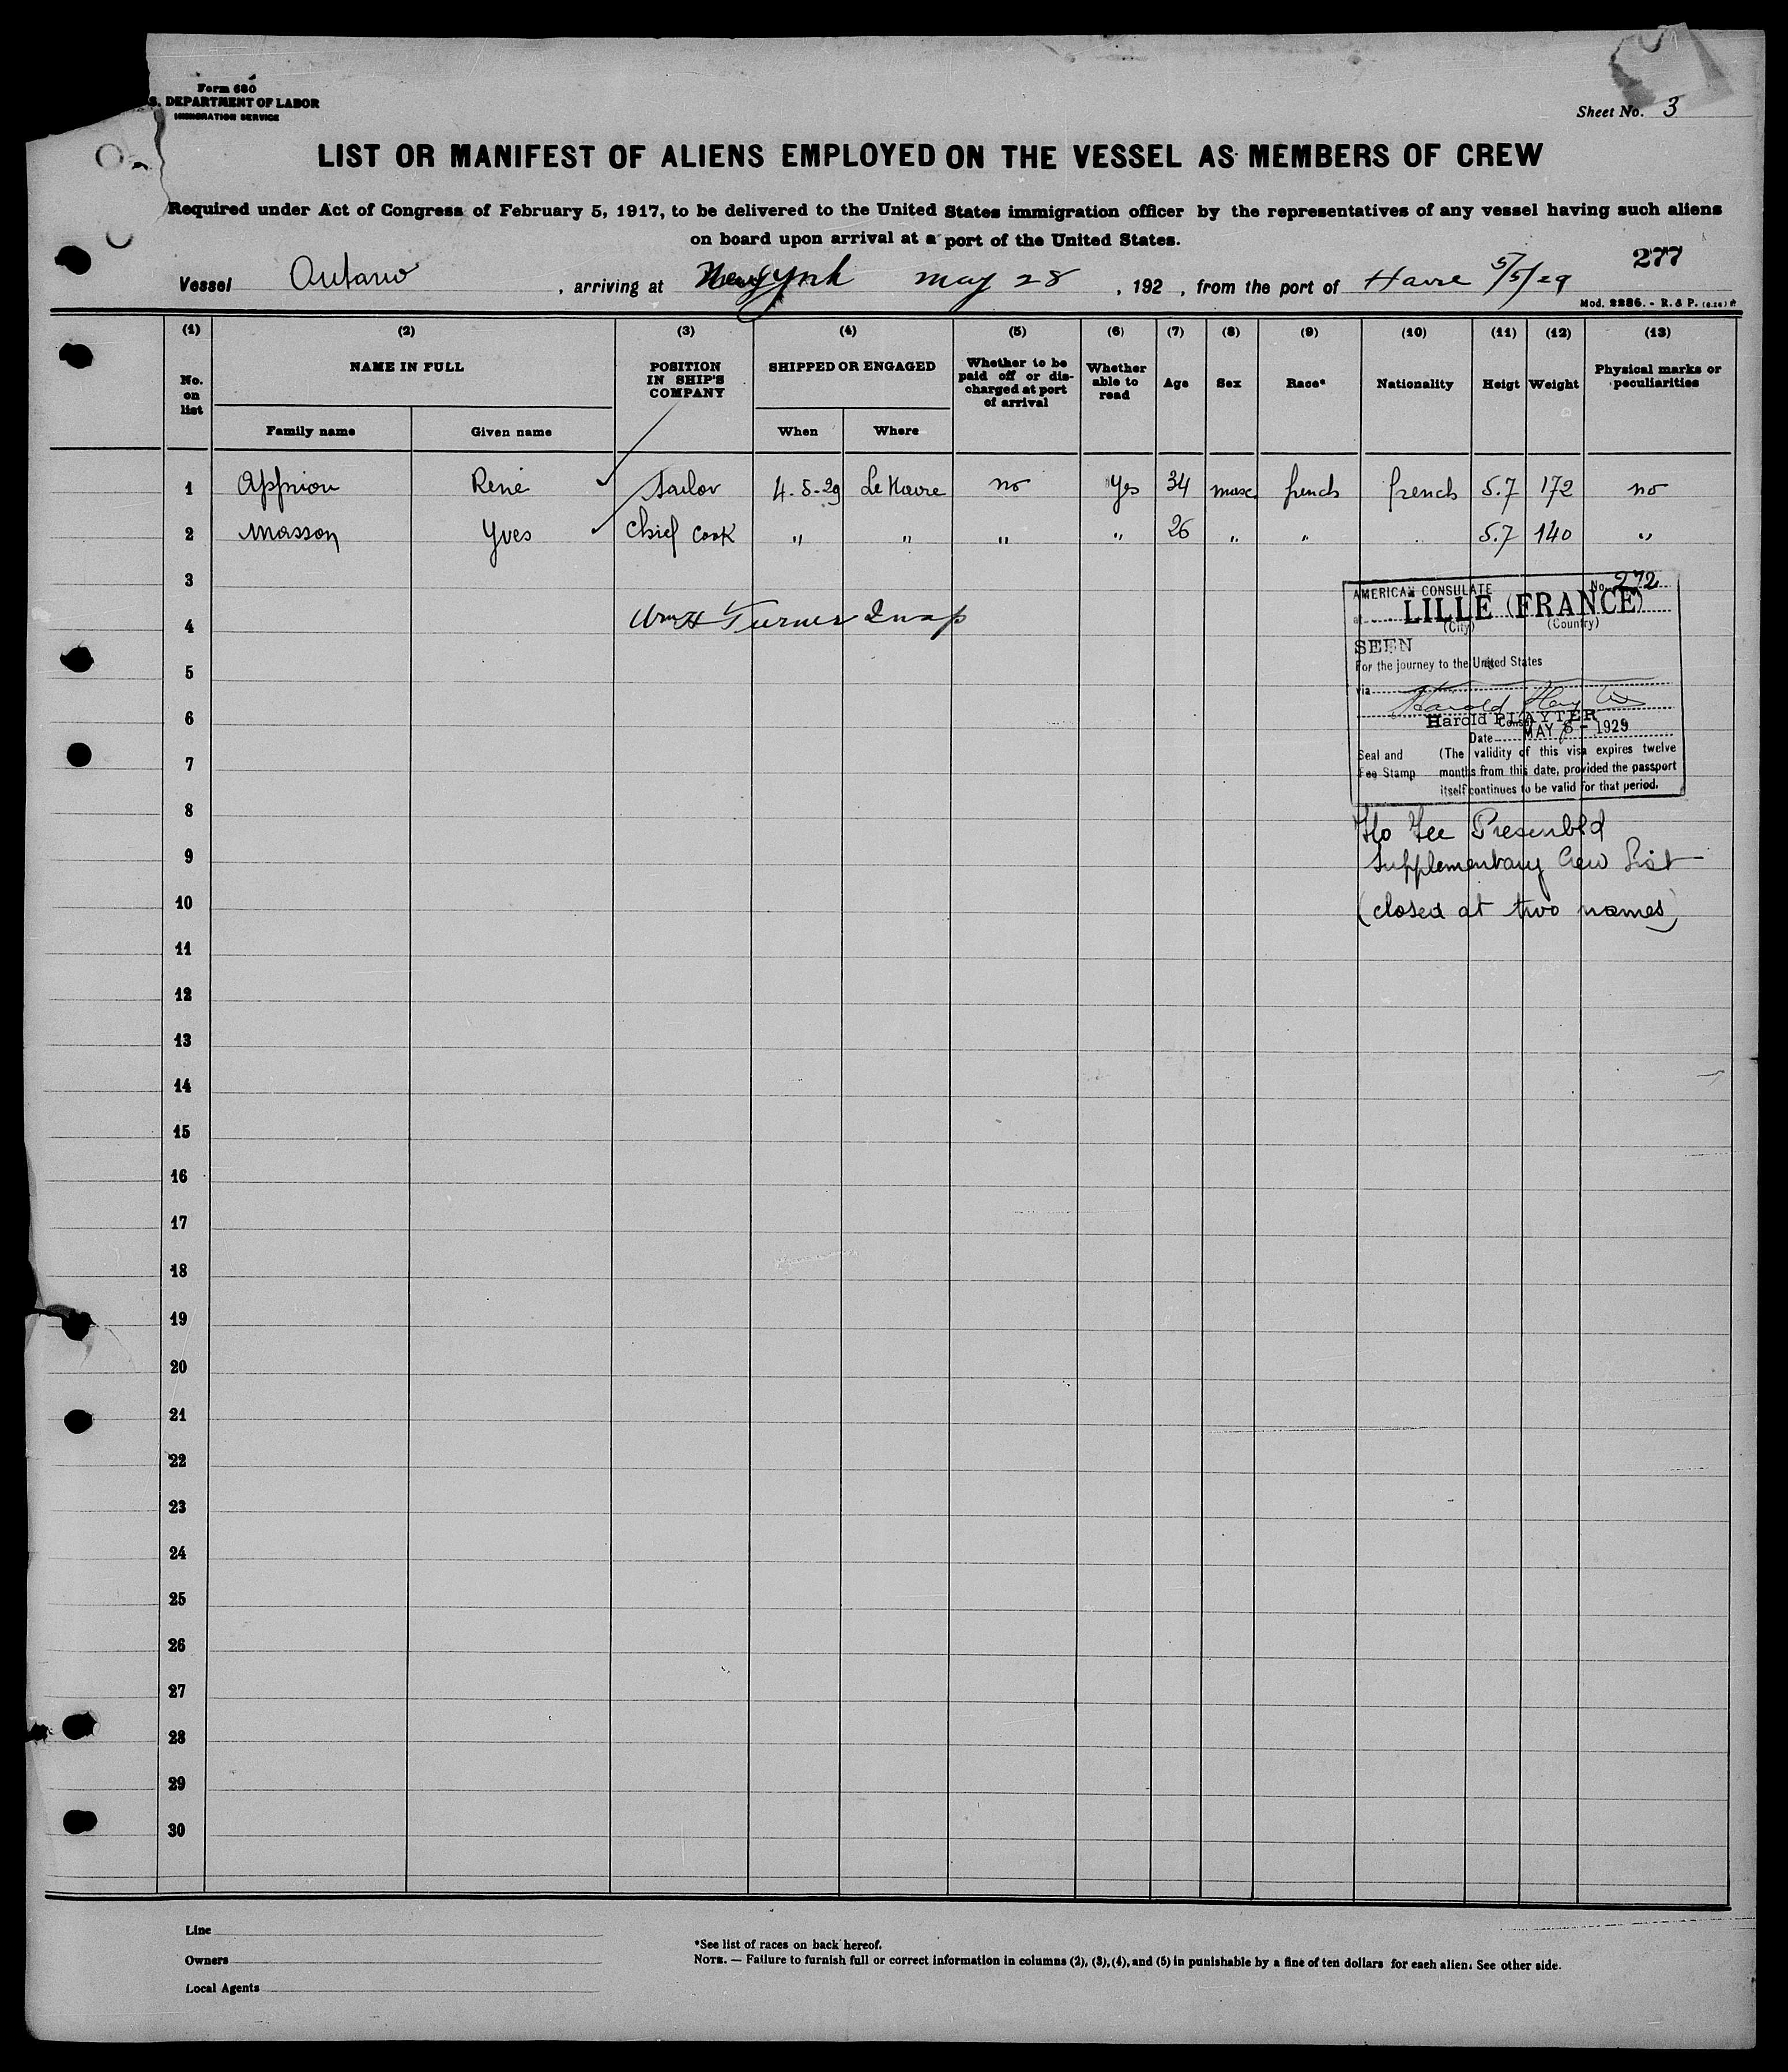 Form 680
S. DEPARTMENT OF LABOR
IMMIGRATION SERVICE
Sheet No. 3
LIST OR MANIFEST OF ALIENS EMPLOYED ON THE VESSEL AS MEMBERS OF CREW
Required under Act of Congress of February 5, 1917, to be delivered to the United States immigration officer by the representatives of any vessel having such aliens
on board upon arrival at a port of the United States.
277
Vessel , arriving at New York May 28 , 192 , from the port of Havre 5/5/29
Mod. 2286. - R. & P.
(1) (2) (3) (4) (5) (6) (7) (8) (9) (10) (11) (12) (13)
No. on list NAME IN FULL POSITION IN SHIP'S COMPANY SHIPPED OR ENGAGED Whether to be paid off or dis-charged at port of arrival Whether able to read Age Sex Race* Nationality Heigt Weight Physical marks or peculiarities
Family name Given name When Where
1 René Sailor 4.5.29 Le Havre no Yes 34 masc. french french 5.7 172 no
2 Masson Yves Chief Cook " " " " 26 " " 5.7 140 "
3
4 Wm H Turner Insp
5
6
7
8
9
10
11
12
13
14
15
16
17
18
19
20
21
22
23
24
25
26
27
28
29
30
AMERICAN CONSULATE No. 272
at LILLE (FRANCE)
(City) (Country)
SEEN
For the journey to the United States
via
Harold PLAYTER
Consul
Date MAY 6 - 1929
Seal and Fee Stamp (The validity of this visa expires twelve
months from this date, provided the passport
itself continues to be valid for that period.
No Fee Prescribed
Supplementary Crew List
(closed at two names)
Line
Owners
Local Agents
*See list of races on back hereof.
NOTE. — Failure to furnish full or correct information in columns (2), (3), (4), and (5) in punishable by a fine of ten dollars for each alien. See other side.